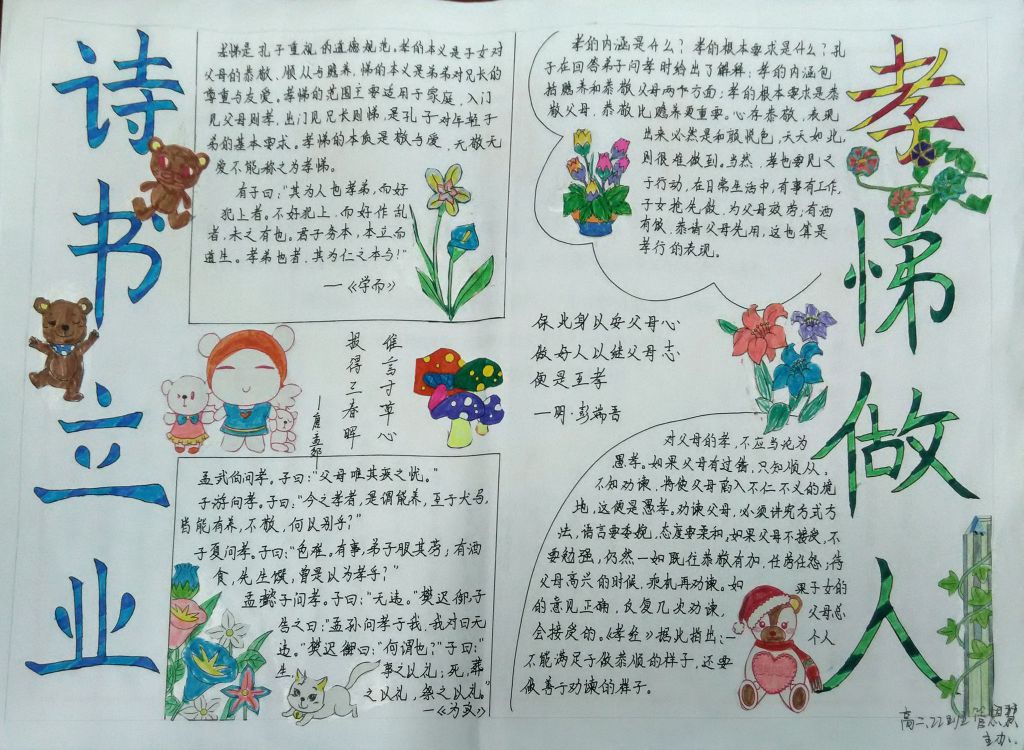 孝悌做人
诗书立业
孝悌是孔子重视的道德规范。孝的本义是子女对
父母的恭敬、顺从与赡养,悌的本义是弟弟对兄长的
尊重与友爱。孝悌的范围主要适用于家庭,入门
见父母则孝,出门见兄长则悌,是孔子对年轻子
弟的基本要求。孝悌的本质是敬与爱,无敬无
爱不能称之为孝悌。
有子曰:“其为人也孝弟,而好
犯上者。不好犯上,而好作乱
者,未之有也。君子务本,本立而
道生。孝弟也者,其为仁之本与!”
—《学而》
谁言寸草心
报得三春晖
—唐 孟郊
孟武伯问孝。子曰:“父母唯其疾之忧。”
子游问孝。子曰:“今之孝者,是谓能养,至于犬马,
皆能有养,不敬,何以别乎?”
子夏问孝。子曰:“色难。有事,弟子服其劳;有酒
食,先生馔,曾是以为孝乎?”
孟懿子问孝。子曰:“无违。”樊迟御,子
告之曰:“孟孙问孝于我,我对曰无
违。”樊迟曰:“何谓也?”子曰:“
生,事之以礼;死,葬
之以礼,祭之以礼。”
—《为政》
孝的内涵是什么?孝的根本要求是什么?孔
子在回答弟子问孝时给出了解释:孝的内涵包
括赡养和恭敬父母两个方面;孝的根本要求是恭
敬父母,恭敬比赡养更重要。心存恭敬,表现
出来必然是和颜悦色,天天如此,
则很难做到。当然,孝也要见之
于行动,在日常生活中,有事有工作,
子女抢先做,为父母效劳;有酒
有饭,恭请父母先用,这也算是
孝行的表现。
保此身以安父母心
做好人以继父母志
便是至孝
—明·彭端吾
对父母的孝,不应当沦为
愚孝。如果父母有过错,只知顺从,
不知劝谏,将使父母陷入不仁不义的境
地,这便是愚孝。劝谏父母,必须讲究方式方
法,语言要委婉,态度要柔和,如果父母不接受,不
要勉强,仍然一如既往恭敬有加,任劳任怨;待
父母高兴的时候,乘机再劝谏。如果子女的
的意见正确,反复几次劝谏,父母总
会接受的。《孝经》据此指出:一个人
不能满足于做恭顺的样子,还要
做善于劝谏的样子。
高二.22班 管思慧
主办.